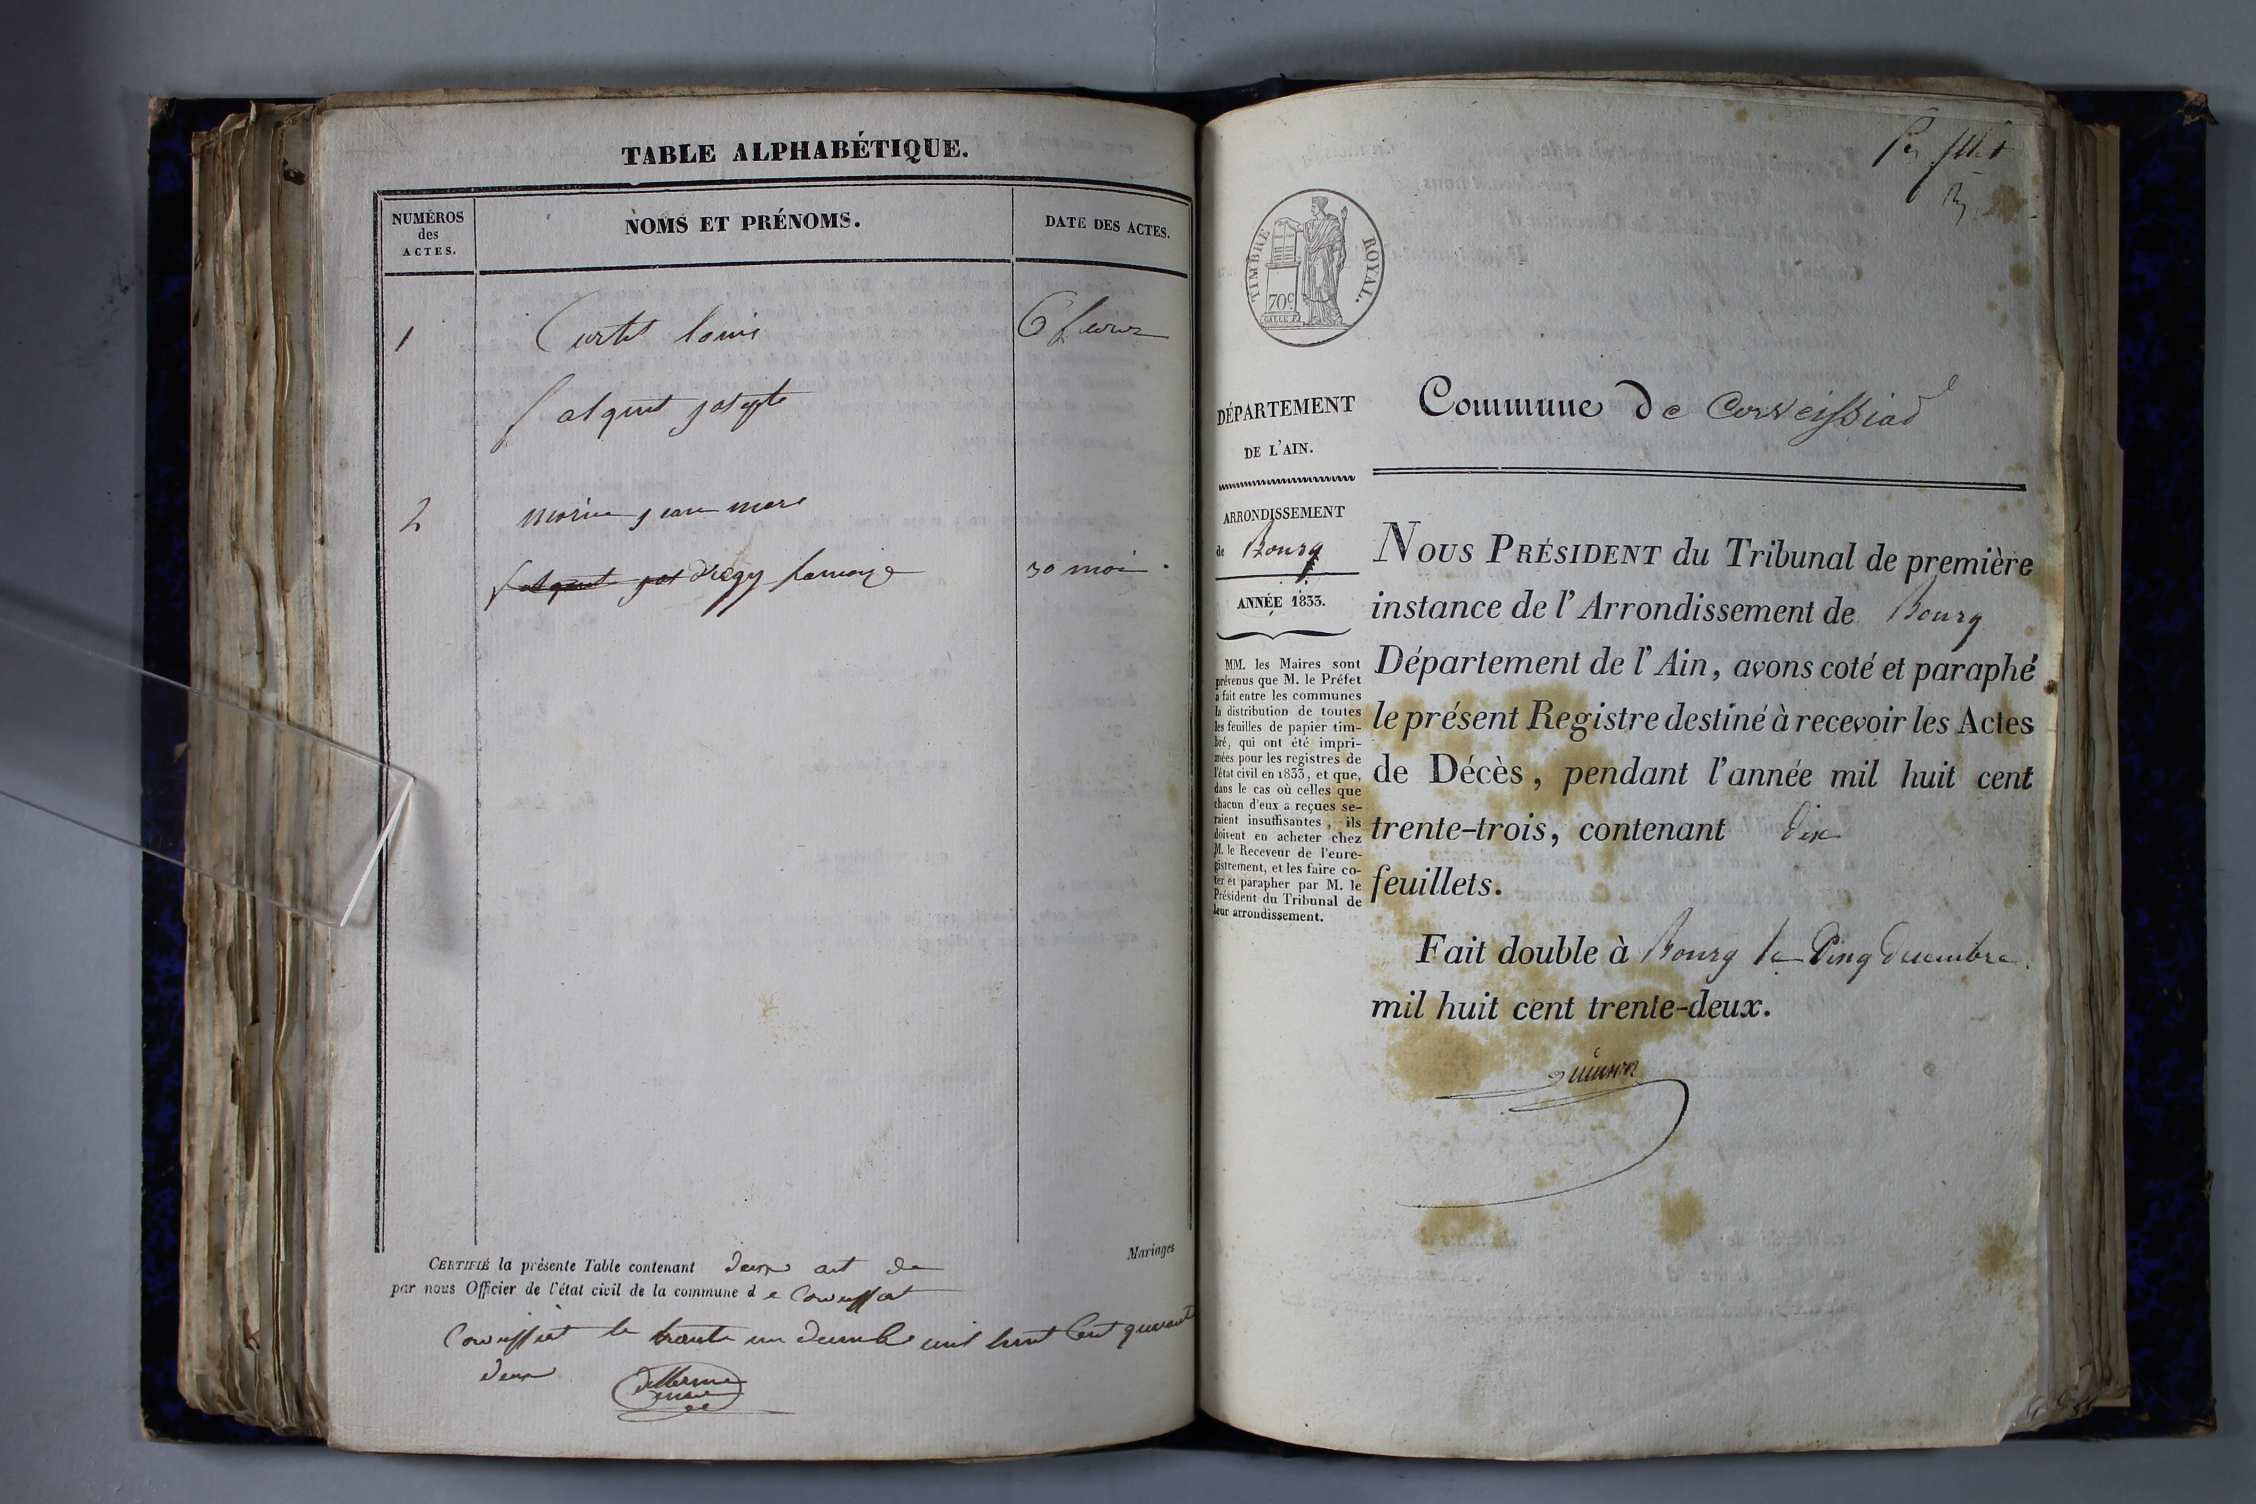 TABLE ALPHABÉTIQUE.
NUMÉROS
des
ACTES.
NOMS ET PRÉNOMS.
DATE DES ACTES.
1 Curtet louis 6 fevrier
falquet josepte
2 morin jean marc
falquet jos françoise 30 mai
CERTIFIÉ la présente Table contenant deux act de
Mariages
par nous Officier de l'état civil de la commune de Corveissiat
Corveissiat le trente un decembre mil huit Cent quarante
deux
maire
TIMBRE ROYAL.
70c.
DÉPARTEMENT
DE L'AIN.
ARRONDISSEMENT
de Bourg
ANNÉE 1833.
MM. les Maires sont
prévenus que M. le Préfet
a fait entre les communes
la distribution de toutes
les feuilles de papier tim-
bré, qui ont été impri-
mées pour les registres de
l'état civil en 1833, et que,
dans le cas où celles que
chacun d'eux a reçues se-
raient insuffisantes, ils
doivent en acheter chez
M. le Receveur de l'enre-
gistrement, et les faire co-
ter et parapher par M. le
Président du Tribunal de
leur arrondissement.
Commune de Corveissiad
NOUS PRÉSIDENT du Tribunal de première
instance de l'Arrondissement de Bourg
Département de l'Ain, avons coté et paraphé
le présent Registre destiné à recevoir les Actes
de Décès, pendant l'année mil huit cent
trente-trois, contenant dix
feuillets.
Fait double à Bourg le Cinq Decembre
mil huit cent trente-deux.